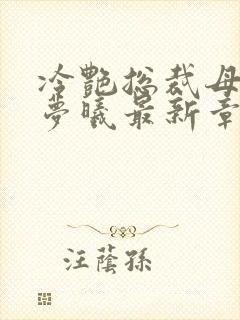 冷艷総裁母
夢曦最新章
汪蔭孫